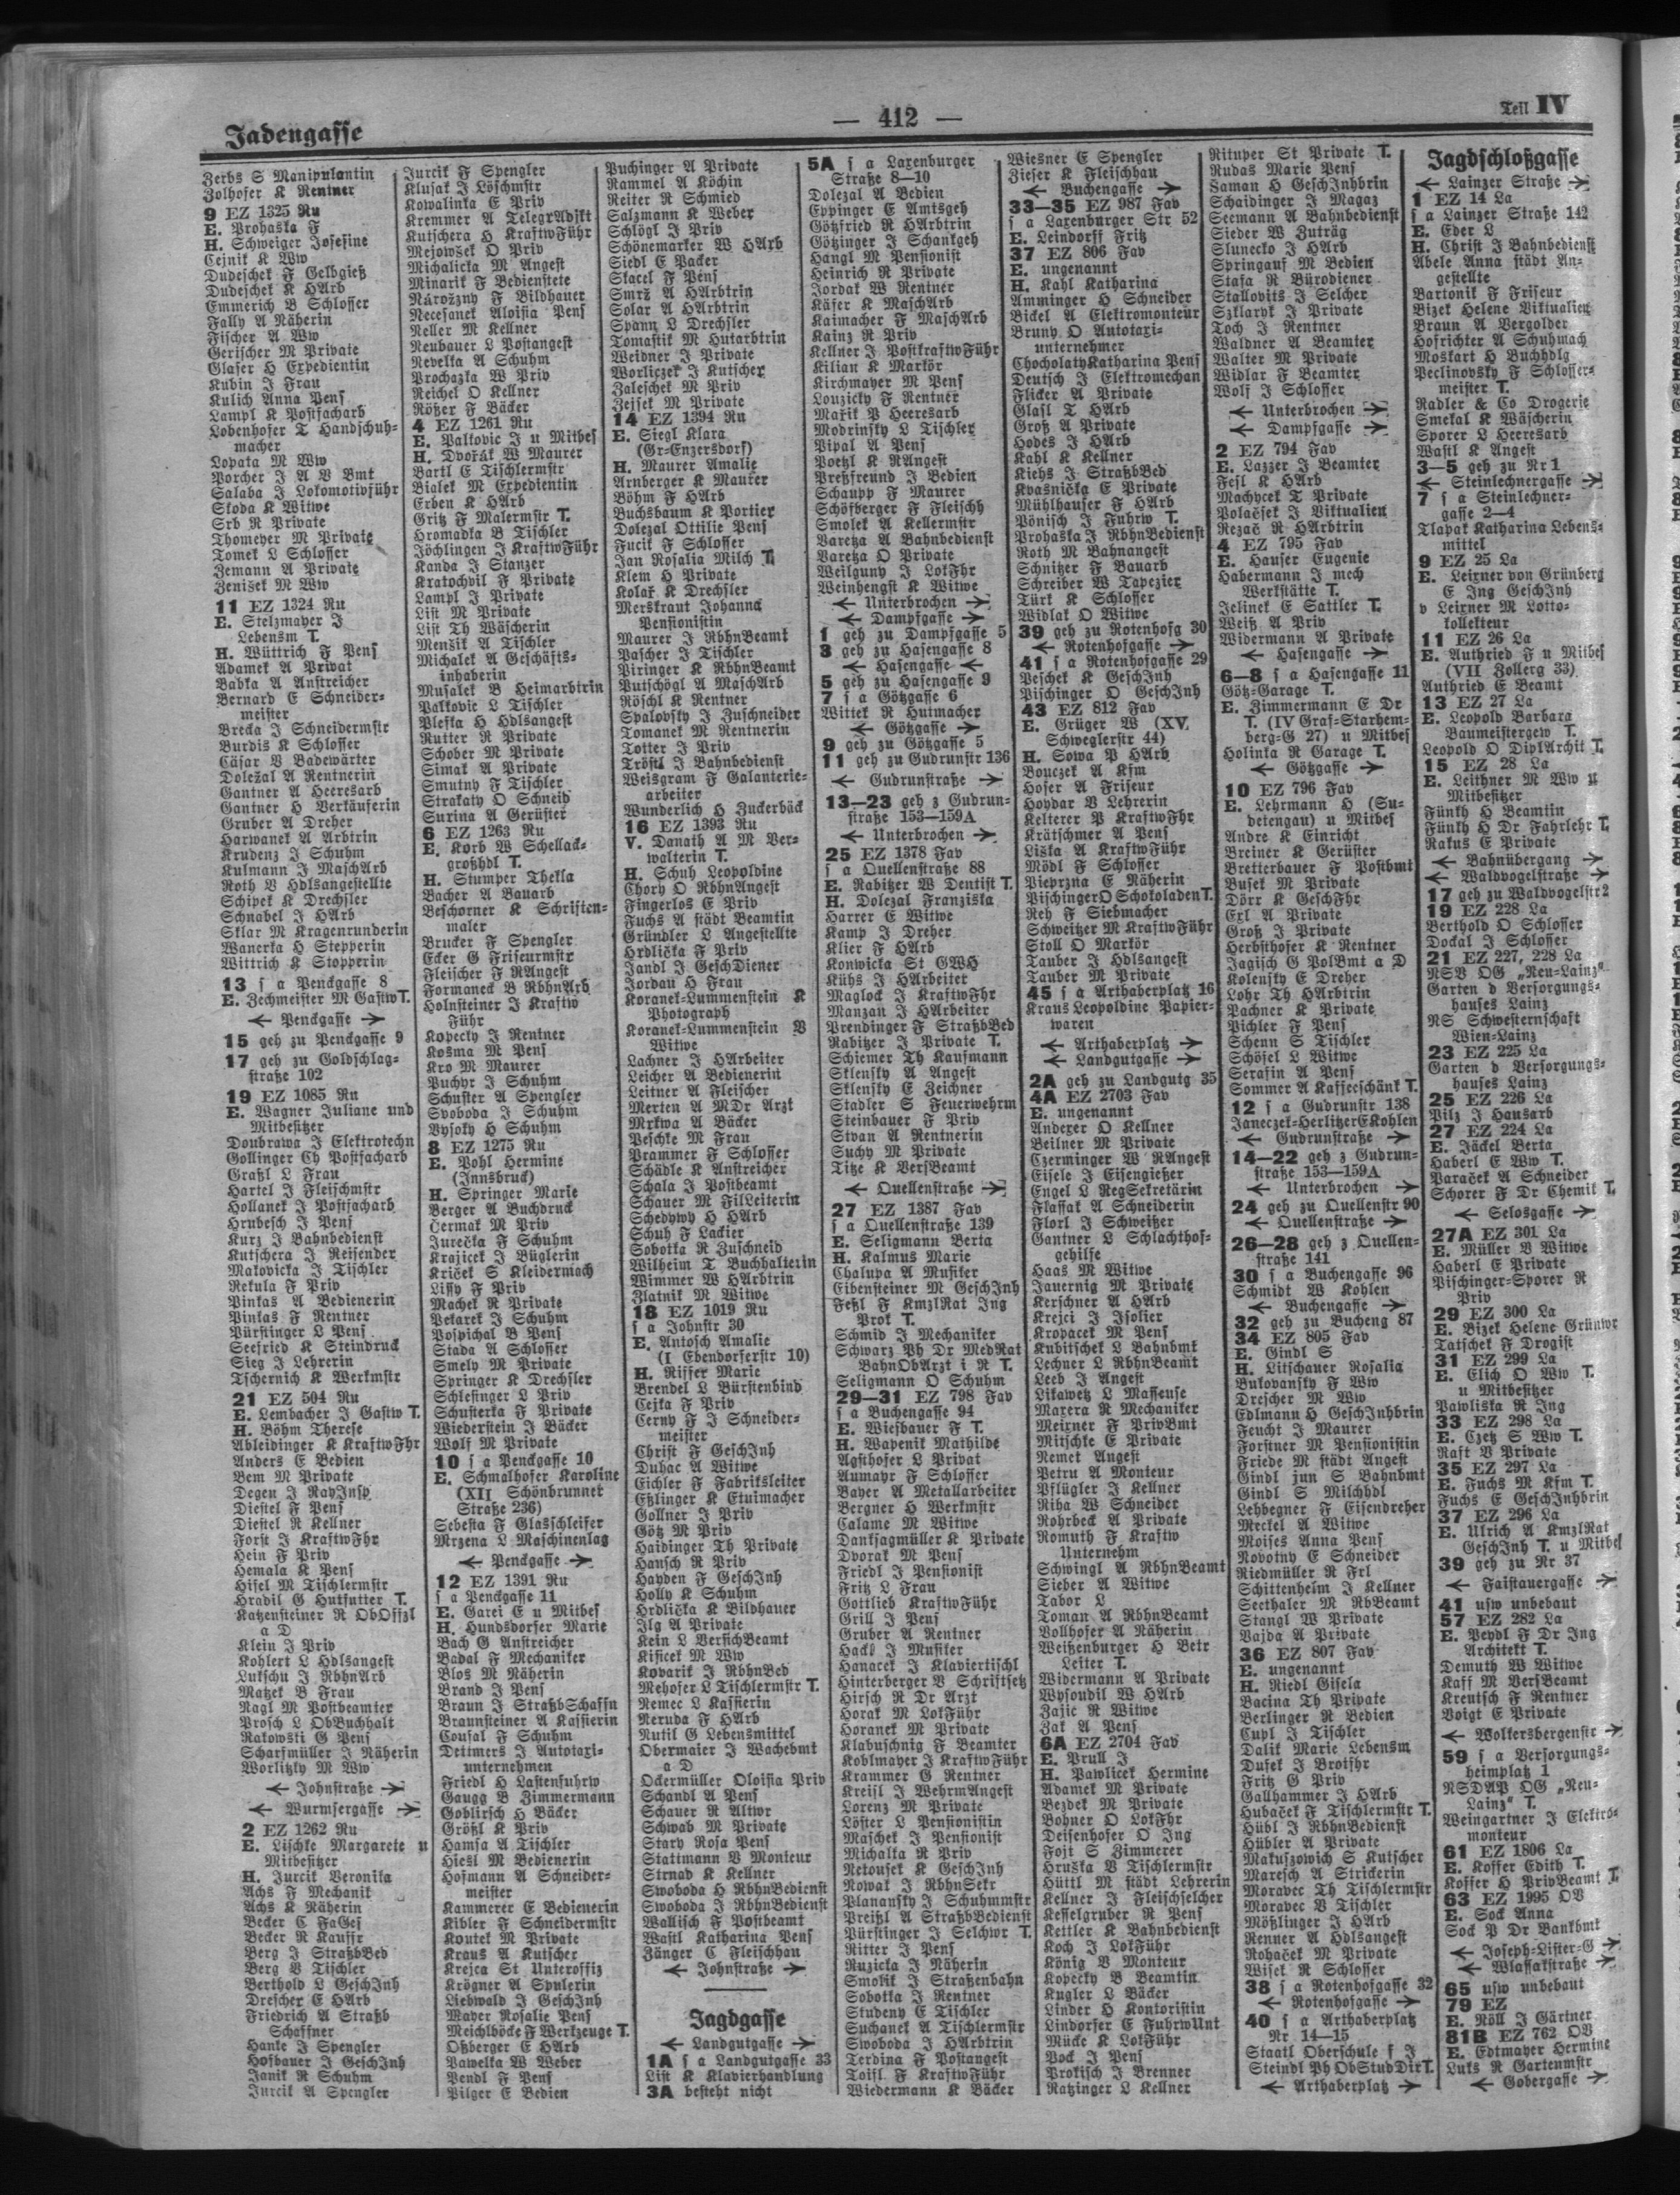 Jadengasse
— 412 —
Teil IV
Zerbs S Manipulantin
Zolhofer K Rentner
9 EZ 1325 Ru
E. Prohaska F
H. Schweiger Josefine
Cejnik K Ww
Dudeschek F Gelbgieß
Dudeschek K HArb
Emmerich B Schlosser
Fally A Näherin
Fischer A Ww
Gerischer M Private
Glaser H Expedientin
Kubin J Frau
Kulich Anna Pens
Lampl K Postfacharb
Lobenhofer T Handschuh-
macher
Lopata M Ww
Porcher J A V Bmt
Salaba J Lokomotivführ
Skoda K Witwe
Srb R Private
Thomeyer M Private
Tomek L Schlosser
Zemann A Private
Zenisek M Ww
11 EZ 1324 Ru
E. Stelzmayer J
Lebensm T.
H. Wüttrich F Pens
Adamek A Privat
Babka A Anstreicher
Bernard E Schneider-
meister
Brecka J Schneidermstr
Burdis K Schlosser
Cäsar V Badewärter
Doležal A Rentnerin
Gantner A Heeresarb
Gantner H Verkäuferin
Gruber A Dreher
Harwanek A Arbtrin
Krudenz J Schuhm
Kulmann J MaschArb
Roth V Hdlsangestellte
Schipek K Drechsler
Schnabel J HArb
Sklar M Kragenrunderin
Wanerka H Stepperin
Wittrich K Stopperin
13 s a Penckgasse 8
E. Zechmeister M Gastw T.
← Penckgasse →
15 geh zu Penckgasse 9
17 geh zu Goldschlag-
straße 102
19 EZ 1085 Ru
E. Wagner Juliane und
Mitbesitzer
Doubrawa J Elektrotechn
Gollinger Ch Postfacharb
Graßl L Frau
Hartel J Fleischmstr
Hollanek J Postfacharb
Hrubesch J Pens
Kurz J Bahnbedienst
Kutschera J Reisender
Makovicka J Tischler
Nekula F Priv
Pinkas A Bedienerin
Pinkas F Rentner
Pürstinger L Pens
Seefried K Steindruck
Sieg J Lehrerin
Tschernich K Werkmstr
21 EZ 504 Ru
E. Lembacher J Gastw T.
H. Böhm Therese
Ableidinger K KraftwFhr
Anders E Bedien
Bem M Private
Degen J RayInsp
Diestel F Pens
Diestel R Kellner
Forst J KraftwFhr
Hein F Priv
Hemala K Pens
Hisel M Tischlermstr
Hradil G Hutfutter T.
Katzensteiner R ObOffzl
a D
Klein J Priv
Kohlert L Hdlsangest
Lukschu J RbhnArb
Matzek B Frau
Nagl M Postbeamter
Prosch L ObBuchhalt
Rakowski G Pens
Scharfmüller J Näherin
Worlitzky M Ww
← Johnstraße →
← Wurmsergasse →
2 EZ 1262 Ru
E. Lischke Margarete u
Mitbesitzer
H. Jurcik Veronika
Achs F Mechanik
Achs K Näherin
Becker C FaGes
Becker R Kauffr
Berg J StraßbBed
Berg V Tischler
Berthold L GeschInh
Drescher E HArb
Friedrich A Straßb
Schaffner
Hanke J Spengler
Hofbauer J GeschInh
Janik R Schuhm
Jurcik A Spengler
Jurcik F Spengler
Klusak J Löschmstr
Kowalinka E Priv
Kremmer A TelegrAdjkt
Kutschera H KraftwFühr
Mejowšek O Priv
Michalicka M Angest
Minarik F Bedienstete
Národžny F Bildhauer
Necesanek Aloisia Pens
Neller M Kellner
Neubauer L Postangest
Nevelka A Schuhm
Prochazka W Priv
Reichel O Kellner
Rößer F Bäcker
4 EZ 1261 Ru
E. Palkovic J u Mitbes
H. Dvořák W Maurer
Bartl E Tischlermstr
Bialek M Expedientin
Erben K HArb
Gritz F Malermstr T.
Hromadka B Tischler
Jöchlingen J KraftwFühr
Kanda J Stanzer
Kratochvil F Private
Lampl J Private
List M Private
List Th Wäscherin
Menšik A Tischler
Michalek A Geschäfts-
inhaberin
Musalek B Heimarbtrin
Palkovic L Tischler
Pleska H Hdlsangest
Rutter R Private
Schober M Private
Simak A Private
Smutny F Tischler
Strakaty O Schneid
Surina A Gerüster
6 EZ 1263 Ru
E. Korb W Schellack-
großhdl T.
H. Stumper Thekla
Bacher A Bauarb
Beschorner K Schriften-
maler
Brucker F Spengler
Ecker G Friseurmstr
Fleischer F RAngest
Formaneck B RbhnArb
Holnsteiner J Kraftw
Führ
Kopecky J Rentner
Košma M Pens
Kro M Maurer
Puchyr J Schuhm
Schuster A Spengler
Svoboda J Schuhm
Vysoky H Schuhm
8 EZ 1275 Ru
E. Pohl Hermine
(Innsbruck)
H. Springer Marie
Berger A Buchdruck
Čermak M Priv
Jurečka F Schuhm
Krajicek J Büglerin
Kriček S Kleidermach
Lissy F Priv
Machek R Private
Pekarek J Schuhm
Pospichal B Pens
Stada A Schlosser
Smely M Private
Springer K Drechsler
Schlesinger L Priv
Schusterka F Private
Wiederstein J Bäcker
Wolf M Private
10 s a Penckgasse 10
E. Schmalhofer Karoline
(XII Schönbrunner
Straße 236)
Sebesta F Glasschleifer
Mrzena L Maschinenlag
← Penckgasse →
12 EZ 1391 Ru
s a Penckgasse 11
E. Garei E u Mitbes
H. Hundsdorfer Marie
Bach G Anstreicher
Badal F Mechaniker
Blos M Näherin
Brand J Pens
Braun J StraßbSchaffn
Braunsteiner A Kassierin
Cousal F Schuhm
Dettmers J Autotaxi-
unternehmen
Friedl H Lastenfuhrw
Gaugg B Zimmermann
Goblirsch H Bäcker
Größl K Priv
Hamsa A Tischler
Hiesl M Bedienerin
Hofmann A Schneider-
meister
Kammerer E Bedienerin
Kibler F Schneidermstr
Koutek M Private
Kraus A Kutscher
Krejca St Unteroffiz
Krögner A Spulerin
Liebwald J GeschInh
Mayer Rosalie Pens
Meichlböck F Werkzeuge T.
Oßberger E HArb
Pawelka W Weber
Pendl F Pens
Pilger E Bedien
Puchinger A Private
Rammel A Köchin
Reiter R Schmied
Salzmann K Weber
Schlögl J Priv
Schönemarker W HArb
Siedl E Packer
Skacel F Pens
Smrž A HArbtrin
Solar A HArbtrin
Spann L Drechsler
Tomastik M Hutarbtrin
Weidner J Private
Worliczek J Kutscher
Zaleschek M Priv
Zejsek M Private
14 EZ 1394 Ru
E. Siegl Klara
(Gr-Enzersdorf)
H. Maurer Amalie
Arnberger K Maurer
Böhm F HArb
Buchsbaum K Portier
Dolezal Ottilie Pens
Fucik F Schlosser
Jan Rosalia Milch T.
Klem H Private
Kolař K Drechsler
Merskraut Johanna
Pensionistin
Maurer J RbhnBeamt
Pascher J Tischler
Piringer K RbhnBeamt
Putschögl A MaschArb
Röschl K Rentner
Spalovsky J Zuschneider
Tomanek M Rentnerin
Totter J Priv
Tröstl J Bahnbedienst
Weisgram F Galanterie-
arbeiter
Wunderlich H Zuckerbäck
16 EZ 1393 Ru
V. Danath A M Ver-
walterin T.
H. Schuh Leopoldine
Chory O RbhnAngest
Fingerlos E Priv
Fuchs A städt Beamtin
Gründler L Angestellte
Hrdlička F Priv
Jandl J GeschDiener
Jordan H Frau
Koranek-Lummenstein K
Photograph
Koranek-Lummenstein B
Witwe
Lachner J HArbeiter
Leicher A Bedienerin
Leitner A Fleischer
Merten A MDr Arzt
Mrkwa A Bäcker
Peschke M Frau
Prammer F Schlosser
Schädle K Anstreicher
Schala J Postbeamt
Schauer M FilLeiterin
Schedywy H HArb
Schuh F Lackier
Sobotka R Zuschneid
Wilheim T Buchhalterin
Wimmer W HArbtrin
Zlatnik M Witwe
18 EZ 1019 Ru
s a Johnstr 30
E. Antosch Amalie
(I Ebendorferstr 10)
H. Risser Marie
Brendel L Bürstenbind
Cejka F Priv
Cerny F J Schneider-
meister
Christ F GeschInh
Duhac A Witwe
Eichler F Fabriksleiter
Eßlinger K Etuimacher
Gollner J Priv
Götz M Priv
Haidinger Th Private
Hansch R Priv
Hayden F GeschInh
Holly K Schuhm
Hrdlička K Bildhauer
Ilg A Private
Kein L VersichBeamt
Kisicek M Ww
Kovarik J RbhnBed
Mehofer L Tischlermstr T.
Nemec L Kassierin
Neruda F HArb
Nutil G Lebensmittel
Obermaier J Wachebmt
a D
Ockermüller Oloisia Priv
Schandl A Pens
Schauer R Altwr
Schwab M Private
Stary Rosa Pens
Stattmann V Monteur
Strnad K Kellner
Swoboda H RbhnBedienst
Swoboda J RbhnBedienst
Wallisch F Postbeamt
Wastl Katharina Pens
Zänger C Fleischhau
← Johnstraße →
Jagdgasse
← Landgutgasse →
1A s a Landgutgasse 33
List K Klavierhandlung
3A besteht nicht
5A s a Laxenburger
Straße 8—10
Dolezal A Bedien
Eppinger E Amtsgeh
Götzfried R HArbtrin
Götzinger J Schankgeh
Hangl M Pensionist
Heinrich R Private
Jordak W Rentner
Käfer K MaschArb
Kaimacher F MaschArb
Kainz R Priv
Kellner J PostkraftwFühr
Kilian K Markör
Kirchmayer M Pens
Louzicky F Rentner
Mařik P Heeresarb
Modrinsky L Tischler
Pipal A Pens
Poetzl K RAngest
Preßfreund J Bedien
Schaupp F Maurer
Schöfberger F Fleischh
Smolek A Kellermstr
Baretza A Bahnbedienst
Baretza O Private
Weilguny J LokFhr
Weinhengst K Witwe
← Unterbrochen →
← Dampfgasse →
1 geh zu Dampfgasse 5
3 geh zu Hasengasse 8
← Hasengasse ←
5 geh zu Hasengasse 9
7 s a Götzgasse 6
Wittek R Hutmacher
← Götzgasse →
9 geh zu Götzgasse 5
11 geh zu Gudrunstr 136
← Gudrunstraße →
13—23 geh z Gudrun-
straße 153—159A
← Unterbrochen →
25 EZ 1378 Fav
s a Quellenstraße 88
E. Rabitzer W Dentist T.
H. Dolezal Franziska
Harrer E Witwe
Kamp J Dreher
Klier F HArb
Konwicka St GWH
Kühs J HArbeiter
Maglock J KraftwFhr
Manzan J HArbeiter
Prendinger F StraßbBed
Rabitzer J Private T.
Schiemer Th Kaufmann
Sklensky A Angest
Sklensky E Zeichner
Stadler S Feuerwehrm
Steinbauer F Priv
Stvan A Rentnerin
Suchy M Private
Titze K VersBeamt
← Quellenstraße →
27 EZ 1387 Fav
s a Quellenstraße 139
E. Seligmann Berta
H. Kalmus Marie
Chalupa A Musiker
Eibensteiner M GeschInh
Feßl F KmzlRat Ing
Prok T.
Schmid J Mechaniker
Schwarz Ph Dr MedRat
BahnObArzt i R T.
Seligmann O Schuhm
29—31 EZ 798 Fav
s a Buchengasse 94
E. Wiesbauer F T.
H. Wapenik Mathilde
Agsthofer L Privat
Aumayr F Schlosser
Bayer A Metallarbeiter
Bergner H Werkmstr
Calame M Witwe
Danksagmüller K Private
Dvorak M Pens
Friedl J Pensionist
Fritz L Frau
Gottlieb KraftwFühr
Grill J Pens
Gruber A Rentner
Hackl J Musiker
Hanacek J Klaviertischl
Hinterberger V Schriftsetz
Hirsch R Dr Arzt
Horak M LokFühr
Horanek M Private
Klabuschnig F Beamter
Koblmayer J KraftwFühr
Krammer G Rentner
Kreisl J WehrmAngest
Lorenz M Private
Löster L Pensionistin
Maschek J Pensionist
Michalka R Priv
Netousek K GeschInh
Nowak J RbhnSekr
Planansky J Schuhmmstr
Preißl A StraßbBedienst
Pürstinger J Selchwr T.
Ritter J Pens
Ruzicka J Näherin
Smolik J Straßenbahn
Sobotka J Rentner
Studeny E Tischler
Suchanek A Tischlermstr
Swoboda J HArbtrin
Terdina F Postangest
Toifl F KraftwFühr
Wiedermann K Bäcker
Wiesner E Spengler
Zieser K Fleischhau
← Buchengasse →
33—35 EZ 987 Fav
s a Laxenburger Str 52
E. Leindorff Fritz
37 EZ 806 Fav
E. ungenannt
H. Kahl Katharina
Amminger H Schneider
Bickel A Elektromonteur
Bruny O Autotaxi-
unternehmer
Chocholaty Katharina Pens
Deutsch J Elektromechan
Flicker A Private
Glasl T HArb
Groß A Private
Hodes J HArb
Kahl K Kellner
Kiebs J StraßbBed
Kvasnička E Private
Mühlhauser F HArb
Pönisch J Fuhrw T.
Prohaska J RbhnBedienst
Roth M Bahnangest
Schnitzer F Bauarb
Schreiber W Tapezier
Türk K Schlosser
Widlak O Witwe
39 geh zu Rotenhofg 30
← Rotenhofgasse →
41 s a Rotenhofgasse 29
Peschek K GeschInh
Pischinger O GeschInh
43 EZ 812 Fav
E. Grüger W (XV,
Schweglerstr 44)
H. Sowa P HArb
Bouczek A Kfm
Hofer A Friseur
Hoydar V Lehrerin
Kelterer P KraftwFhr
Krätschmer A Pens
Liska A KraftwFühr
Mödl F Schlosser
Pieprzna E Näherin
Pischinger O Schokoladen T.
Reh F Siebmacher
Schweitzer M KraftwFühr
Stoll O Markör
Tauber J Hdlsangest
Tauber M Private
45 s a Arthaberplatz 16
Kraus Leopoldine Papier-
waren
← Arthaberplatz →
← Landgutgasse →
2A geh zu Landgutg 35
4A EZ 2703 Fav
E. ungenannt
Anderer O Kellner
Beilner M Private
Czerminger W RAngest
Eisele J Eisengießer
Engel L RegSekretärin
Flassak A Schneiderin
Florl J Schweißer
Gantner L Schlachthof-
gehilfe
Haas M Witwe
Jauernig M Private
Kerschner A HArb
Krejci J Isolier
Kropacek M Pens
Kubitschek L Bahnbmt
Lechner L RbhnBeamt
Leeb J Angest
Likawetz L Masseuse
Maxera R Mechaniker
Meixner F PrivBmt
Mitschke E Private
Nemet Angest
Petru A Monteur
Pflügler J Kellner
Riha W Schneider
Rohrbeck A Private
Romuth F Kraftw
Unternehm
Schwingl A RbhnBeamt
Sieber A Witwe
Tabor L
Toman A RbhnBeamt
Vollhofer A Näherin
Weißenburger H Betr
Leiter T.
Widermann A Private
Wysoudil W HArb
Zajic R Witwe
Zak A Pens
6A EZ 2704 Fav
E. Prull J
H. Pawlicek Hermine
Adamek M Private
Bezdek M Private
Bohner O LokFhr
Deisenhofer O Ing
Fojt S Zimmerer
Hruška V Tischlermstr
Hüttl M städt Lehrerin
Kellner J Fleischselcher
Kesselgruber R Pens
Kettler K Bahnbedienst
Koch J LokFühr
König V Monteur
Kopecky B Beamtin
Kugler L Bäcker
Linder H Kontoristin
Lindorfer E FuhrwUnt
Mücke K LokFühr
Pock J Pens
Prokisch J Brenner
Ratzinger L Kellner
Rituper St Private T.
Rudas Marie Pens
Saman H GeschInhbrin
Schaidinger J Magaz
Seemann A Bahnbedienst
Sieder W Zuträg
Slunecko J HArb
Springauf M Bedien
Stafa R Bürodiener
Stallovits J Selcher
Szklaryk J Private
Toch J Rentner
Waldner A Beamter
Walter M Private
Widlar F Beamter
Wolf J Schlosser
← Unterbrochen →
← Dampfgasse →
2 EZ 794 Fav
E. Lazzer J Beamter
Fesl K HArb
Machycek T Private
Polačsek J Viktualien
Rezač R HArbtrin
4 EZ 795 Fav
E. Hauser Eugenie
Habermann J mech
Werkstätte T.
Jelinek E Sattler T.
Weiß A Priv
Widermann A Private
← Hasengasse →
6—8 s a Hasengasse 11
Götz-Garage T.
E. Zimmermann E Dr
T. (IV Graf-Starhem-
berg-G 27) u Mitbes
Holinka R Garage T.
← Götzgasse →
10 EZ 796 Fav
E. Lehrmann H (Su-
detengau) u Mitbes
Andre K Einricht
Breiner K Gerüster
Bretterbauer F Postbmt
Busek M Private
Dörr K GeschFhr
Exl A Private
Groß J Private
Herbsthofer K Rentner
Jagisch G PolBmt a D
Kolensky E Dreher
Lohr Th HArbtrin
Pachner K Private
Pichler F Pens
Schenn S Tischler
Schöfel L Witwe
Serafin A Pens
Sommer A Kaffeeschänk T.
12 s a Gudrunstr 138
Janeczek-Herlitzer E Kohlen
← Gudrunstraße →
14—22 geh z Gudrun-
straße 153—159A
← Unterbrochen →
24 geh zu Quellenstr 90
← Quellenstraße →
26—28 geh z Quellen-
straße 141
30 s a Buchengasse 96
Schmidt W Kohlen
← Buchengasse →
32 geh zu Bucheng 87
34 EZ 805 Fav
E. Gindl S
H. Litschauer Rosalia
Bukovansky F Ww
Drescher M Ww
Edlmann H GeschInhbrin
Feucht J Maurer
Forstner M Pensionistin
Friede M städt Angest
Gindl jun S Bahnbmt
Gindl S Milchhdl
Lehbegner F Eisendreher
Meckel A Witwe
Moises Anna Pens
Novotny E Schneider
Riedmüller R Frl
Schittenhelm J Kellner
Seethaler M RbBeamt
Stangl W Private
Vajda A Private
36 EZ 807 Fav
E. ungenannt
H. Riedl Gisela
Bacina Th Private
Berlinger R Bedien
Cupl J Tischler
Dalik Marie Lebensm
Dusek J Broifhr
Fritz G Priv
Gallhammer J HArb
Hubaček F Tischlermstr T.
Hübl J RbhnBedienst
Hübler A Private
Makuszowich S Kutscher
Maresch A Strickerin
Moravec Th Tischlermstr
Moravec V Tischler
Mößlinger J HArb
Renner A Hdlsangest
Rohaček M Private
Wisek R Schlosser
38 s a Rotenhofgasse 32
← Rotenhofgasse →
40 s a Arthaberplatz
Nr. 14—15
Staatl Oberschule f J
Steindl Ph ObStudDir T.
← Arthaberplatz →
Jagdschloßgasse
← Lainzer Straße →
1 EZ 14 La
s a Lainzer Straße 142
E. Eder L
H. Christ J Bahnbedienst
Abele Anna städt An-
gestellte
Bartonik F Friseur
Bizek Helene Viktualien
Braun A Vergolder
Hofrichter A Schuhmach
Moskart H Buchhdlg
Peclinovsky F Schlosser-
meister T.
Radler & Co Drogerie
Smekal K Wäscherin
Sporer L Heeresarb
Wastl K Angest
3—5 geh zu Nr 1
← Steinlechnergasse →
7 s a Steinlechner-
gasse 2—4
Tlapak Katharina Lebens-
mittel
9 EZ 25 La
E. Leixner von Grünberg
E Ing GeschInh
v Leixner M Lotto-
kollekteur
11 EZ 26 La
E. Authried F u Mitbes
(VII Zollerg 33)
Authried E Beamt
13 EZ 27 La
E. Leopold Barbara
Baumeistergew T.
Leopold O DiplArchit T.
15 EZ 28 La
E. Leithner M Ww u
Mitbesitzer
Fünkh H Beamtin
Fünkh H Dr Fahrlehr T.
Rakus E Private
← Bahnübergang →
← Waldvogelstraße →
17 geh zu Waldvogelstr 2
19 EZ 228 La
Berthold O Schlosser
Dockal J Schlosser
21 EZ 227, 228 La
NSV OG „Neu-Lainz“
Garten d Versorgungs-
hauses Lainz
NS Schwesternschaft
Wien-Lainz
23 EZ 225 La
Garten d Versorgungs-
hauses Lainz
25 EZ 226 La
Pilz J Hausarb
27 EZ 224 La
E. Jäckel Berta
Haberl E Ww T.
Paraček A Schneider
Schorer F Dr Chemik T.
← Selosgasse →
27A EZ 301 La
E. Müller V Witwe
Haberl E Private
Pischinger-Sporer R
Priv
29 EZ 300 La
E. Bizek Helene Grünwr
Tatschek F Drogist
31 EZ 299 La
E. Elich O Ww T.
u Mitbesitzer
Pawliska R Ing
33 EZ 298 La
E. Czetz S Ww T.
Raft V Private
35 EZ 297 La
E. Fuchs M Kfm T.
Fuchs E GeschInhbrin
37 EZ 296 La
E. Ulrich A KmzlRat
GeschInh T. u Mitbes
39 geh zu Nr 37
← Faistauergasse →
41 usw unbebaut
57 EZ 282 La
E. Peydl F Dr Ing
Architekt T.
Demuth W Witwe
Kaff M VersBeamt
Kreutsch F Rentner
Voigt E Private
← Wolkersbergenstr →
59 s a Versorgungs-
heimplatz 1
NSDAP OG „Neu-
Lainz“ T.
Weingartner J Elektro-
monteur
61 EZ 1806 La
E. Koffer Edith T.
Koffer H PrivBeamt T.
63 EZ 1995 OV
E. Sock Anna
Sock P Dr Bankbmt
← Joseph-Lister-G →
← Wlassakstraße →
65 usw unbebaut
79 EZ
E. Röll J Gärtner
81B EZ 762 OV
E. Edtmayer Hermine
Luks R Gartenmstr
← Gobergasse →